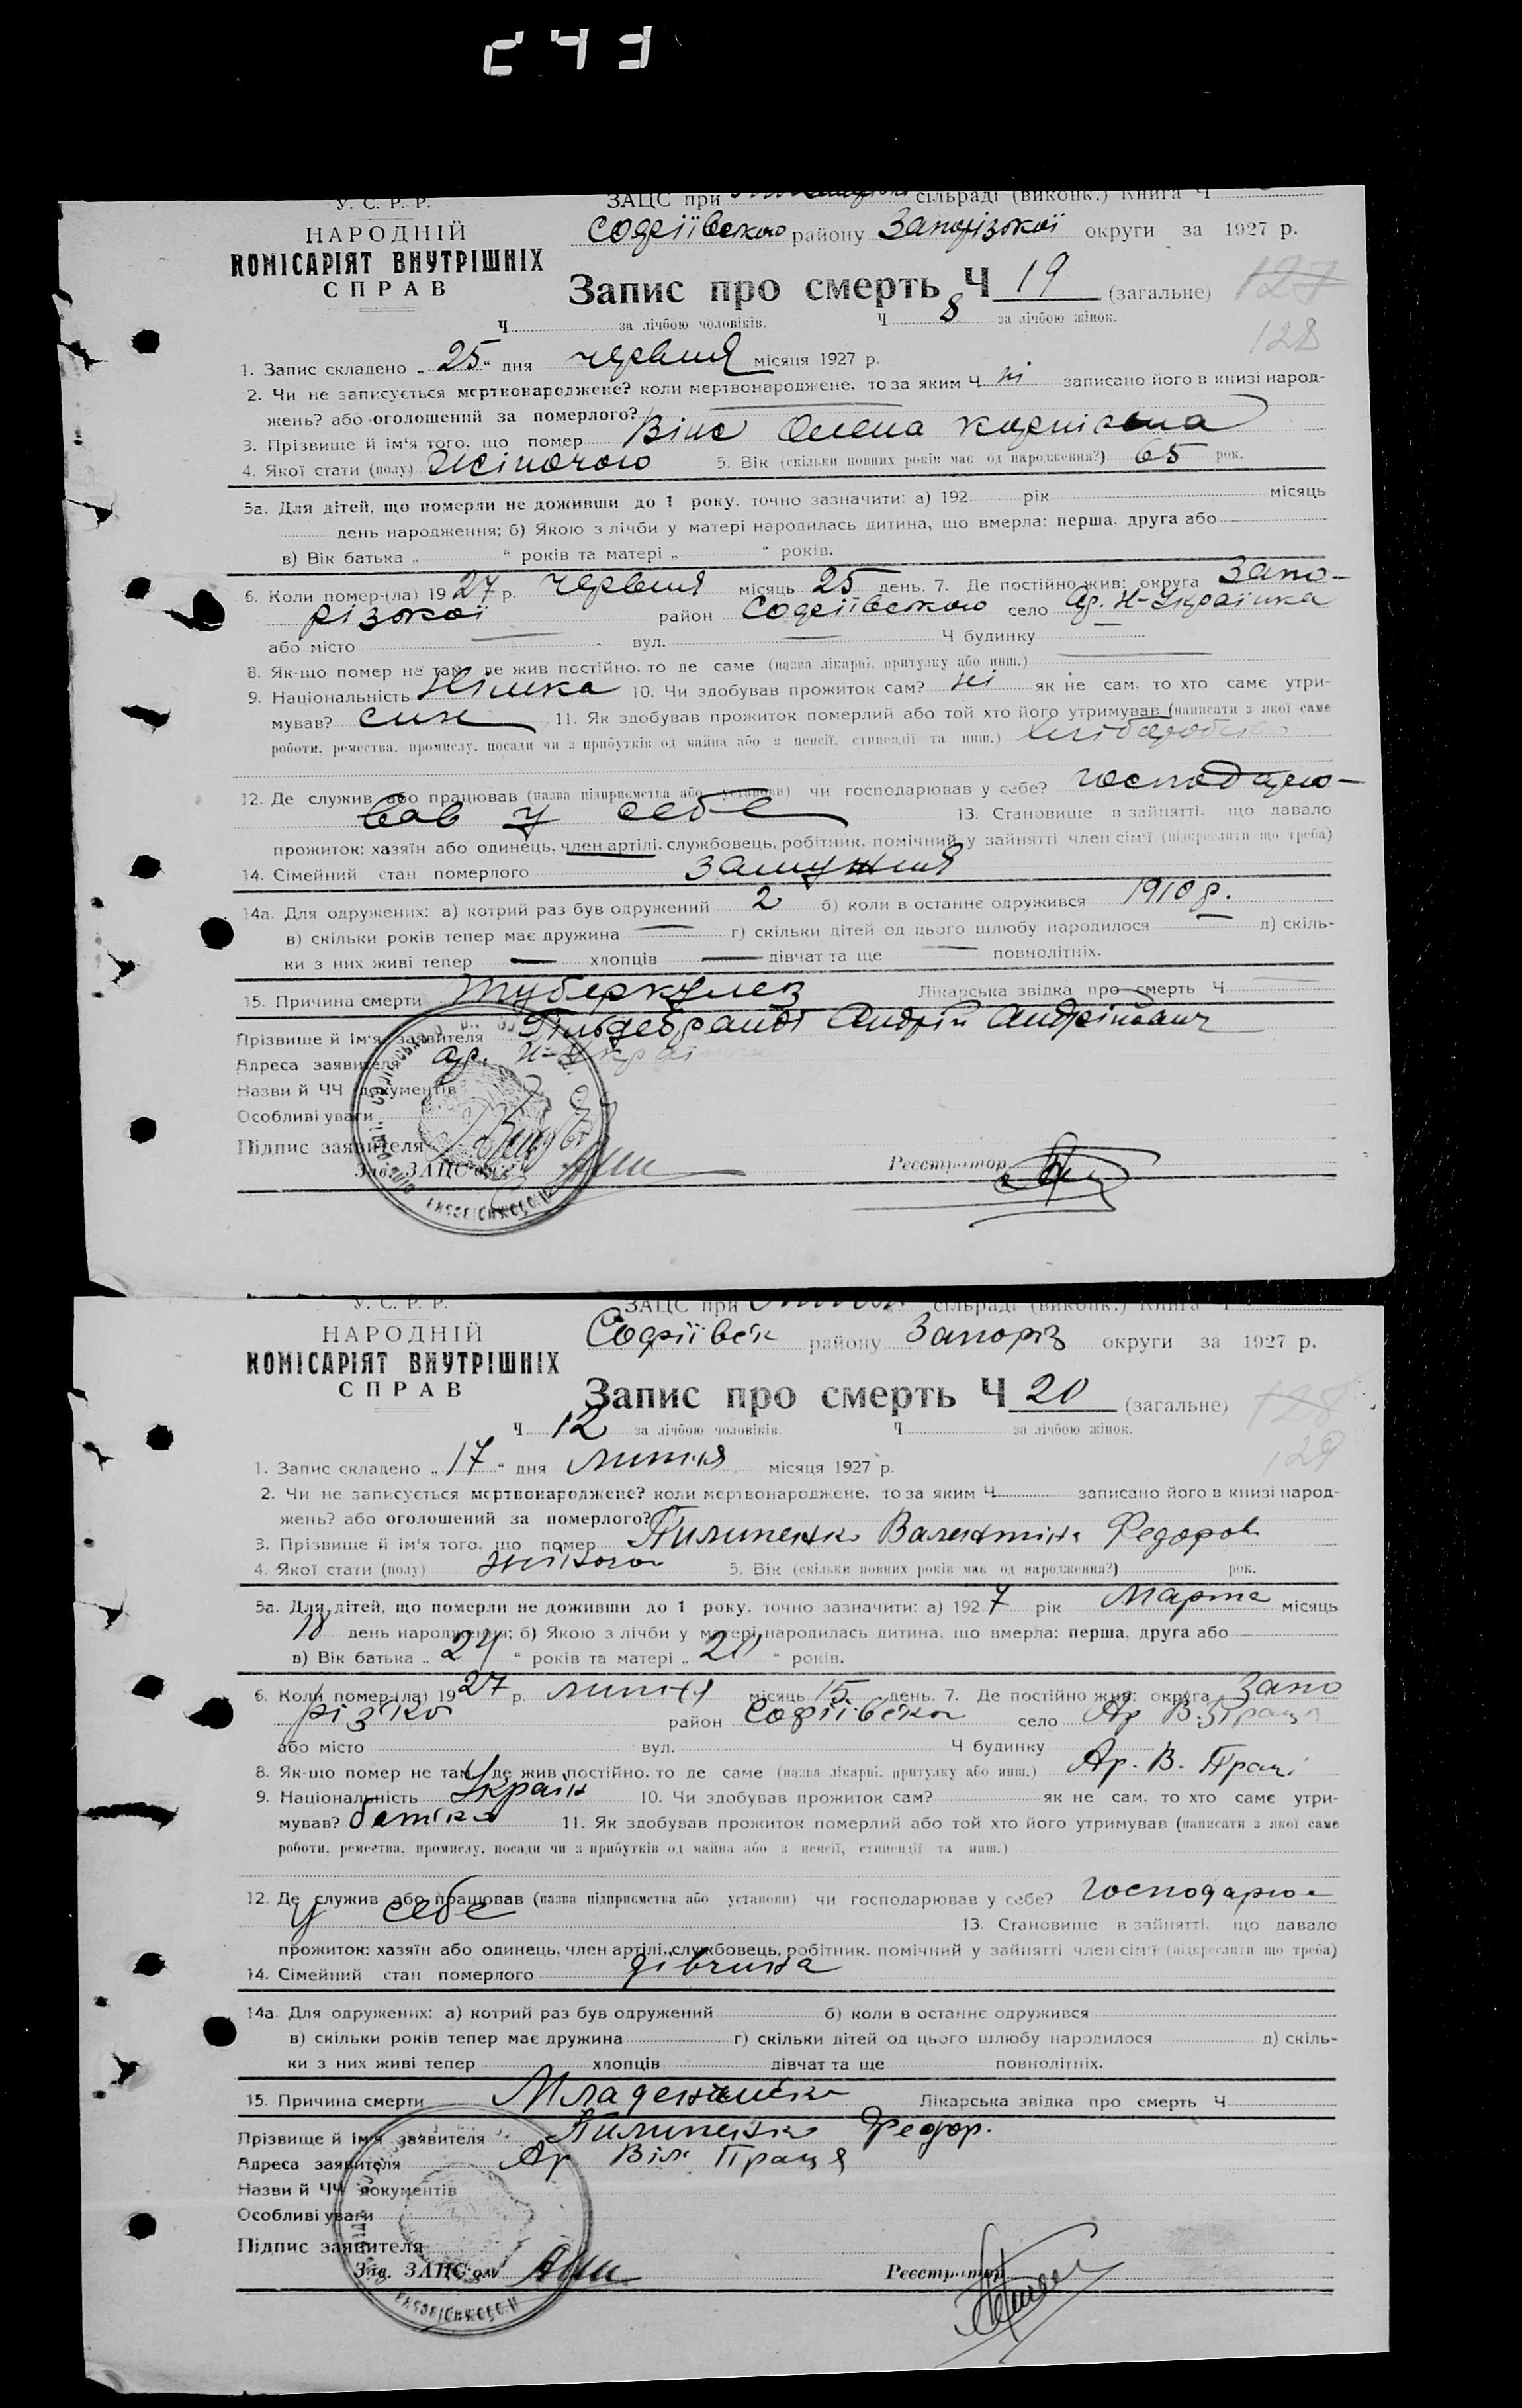 У. С. Р. Р.
НАРОДНІЙ
КОМІСАРІЯТ ВНУТРІШНІХ
СПРАВ
ЗАЦС при сільраді (виконк.) Книга Ч
Софіївського району Запорізької округи за 1927 р.
Запис про смерть Ч 19 (загальне) 127
128
Ч за лічбою чоловіків. Ч 8 за лічбою жінок.
1. Запис складено „ 25 “ дня червня місяця 1927 р.
2. Чи не записується мертвонароджене? коли мертвонароджене, то за яким Ч ні записано його в книзі народ-
жень? або оголошений за померлого?
3. Прізвище й ім'я того, що помер Вінс Олена Корніївна
4. Якої стати (полу) жіночого 5. Вік (скільки повних років має од народження?) 65 рок.
5а. Для дітей, що померли не доживши до 1 року, точно зазначити: а) 192 рік місяць
день народження; б) Якою з лічби у матері народилась дитина, що вмерла: перша, друга або
в) Вік батька „ “ років та матері „ “ років.
6. Коли помер-(ла) 1927 р. червня місяць 25 день. 7. Де постійно жив: округа Запо-
різької район Софіївського село Н-Українка
або місто вул. Ч будинку
8. Як-що помер не там, де жив постійно, то де саме (назва лікарні, притулку або инш.)
9. Національність Німка 10. Чи здобував прожиток сам? ні як не сам, то хто саме утри-
мував? син 11. Як здобував прожиток померлий або той хто його утримував (написати з якої саме
роботи, ремества, промислу, посади чи з прибутків од майна або з пенсії, стипендії та инш.)
12. Де служив або працював (назва підприємства або установи) чи господарював у себе? господарю-
вав у себе 13. Становище в зайнятті, що давало
прожиток: хазяїн або одинець, член артілі, службовець, робітник, помічний у зайнятті член сім'ї (підкреслити що треба)
14. Сімейний стан померлого замужня
14а. Для одружених: а) котрий раз був одружений 2 б) коли в останнє одружився 1910 р.
в) скільки років тепер має дружина г) скільки дітей од цього шлюбу народилося д) скіль-
ки з них живі тепер хлопців дівчат та ще повнолітніх.
15. Причина смерти туберкульоз Лікарська звідка про смерть Ч
Прізвище й ім'я заявителя Гільдебрандт Андрій Андрійович
Адреса заявителя
Назви й ЧЧ документів
Особливі уваги
Підпис заявителя
Зав. ЗАЦС'ом Реєстратор
У. С. Р. Р.
НАРОДНІЙ
КОМІСАРІЯТ ВНУТРІШНІХ
СПРАВ
ЗАЦС при сільраді (виконк.) Книга Ч
Софіївськ району Запоріз округи за 1927 р.
Запис про смерть Ч 20 (загальне) 128
129
Ч 12 за лічбою чоловіків. Ч за лічбою жінок.
1. Запис складено „ 17 “ дня липня місяця 1927 р.
2. Чи не записується мертвонароджене? коли мертвонароджене, то за яким Ч записано його в книзі народ-
жень? або оголошений за померлого?
3. Прізвище й ім'я того, що помер Пилипенко Валентіна Федоров
4. Якої стати (полу) жіночого 5. Вік (скільки повних років має од народження?) рок.
5а. Для дітей, що померли не доживши до 1 року, точно зазначити: а) 1927 рік Марта місяць
день народження; б) Якою з лічби у матері народилась дитина, що вмерла: перша, друга або
в) Вік батька „ 24 “ років та матері „ “ років.
6. Коли помер-(ла) 1927 р. липня місяць 15 день. 7. Де постійно жив: округа Запо
різько район Софіївсько село Ар В. Праця
або місто вул. Ч будинку
8. Як-що помер не там, де жив постійно, то де саме (назва лікарні, притулку або инш.) Ар. В. Праці
9. Національність Україн 10. Чи здобував прожиток сам? як не сам, то хто саме утри-
мував? батько 11. Як здобував прожиток померлий або той хто його утримував (написати з якої саме
роботи, ремества, промислу, посади чи з прибутків од майна або з пенсії, стипендії та инш.)
12. Де служив або працював (назва підприємства або установи) чи господарював у себе? господарює
у себе 13. Становище в зайнятті, що давало
прожиток: хазяїн або одинець, член артілі, службовець, робітник, помічний у зайнятті член сім'ї (підкреслити що треба)
14. Сімейний стан померлого дівчина
14а. Для одружених: а) котрий раз був одружений б) коли в останнє одружився
в) скільки років тепер має дружина г) скільки дітей од цього шлюбу народилося д) скіль-
ки з них живі тепер хлопців дівчат та ще повнолітніх.
15. Причина смерти Лікарська звідка про смерть Ч
Прізвище й ім'я заявителя Пилипенко Федор.
Адреса заявителя Ар Віл Праця
Назви й ЧЧ документів
Особливі уваги
Підпис заявителя
Зав. ЗАЦС'ом Реєстратор